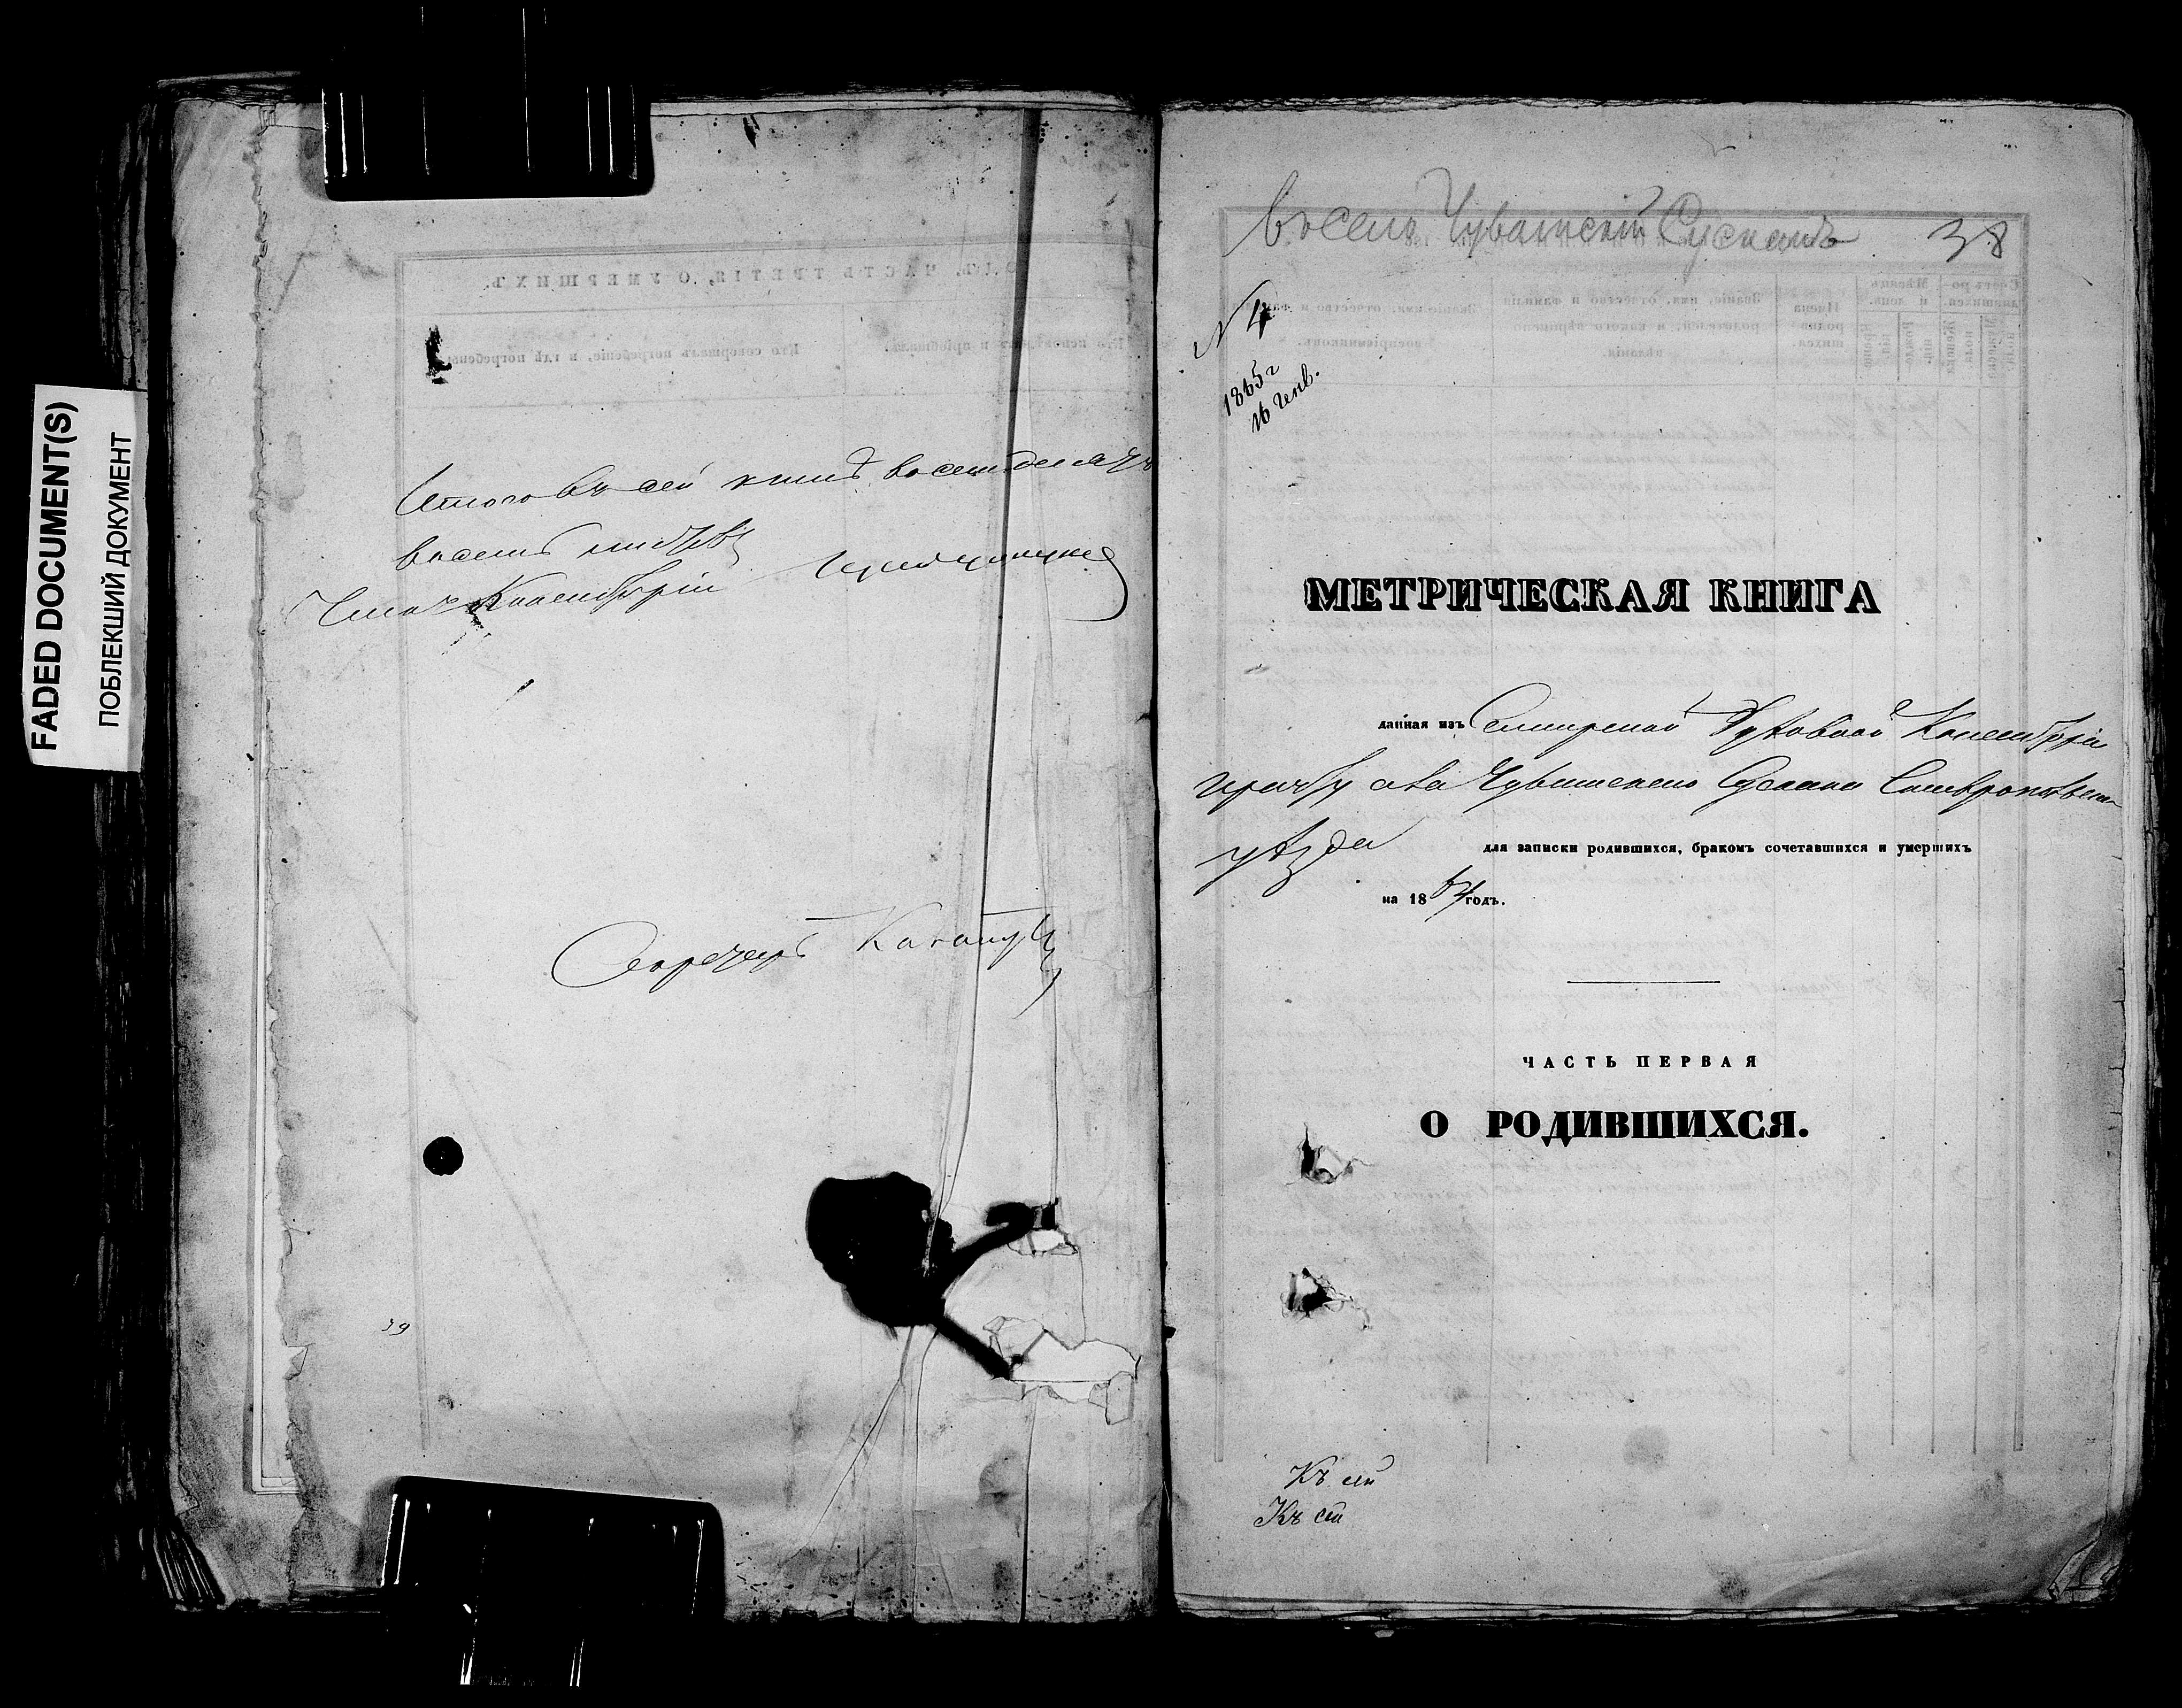 FADED DOCUMENT(S)
ПОБЛЕКШИЙ ДОКУМЕНТ
Итого въ сей книгѣ восемьдесятъ
восемь листовъ
Членъ Консисторіи
Секретарь
39
въ селе Чувашскій Сускань 38
N 4
1865 г
16 Генв.
МЕТРИЧЕСКАЯ КНИГА
данная изъ Симбирской Духовной Консисторіи
причту села Чувашскаго Сускана Ставропольскаго
уѣзда для записки родившихся, бракомъ сочетавшихся и умершихъ
на 1864 годъ.
ЧАСТЬ ПЕРВАЯ
О РОДИВШИХСЯ.
Къ сей
Къ сей